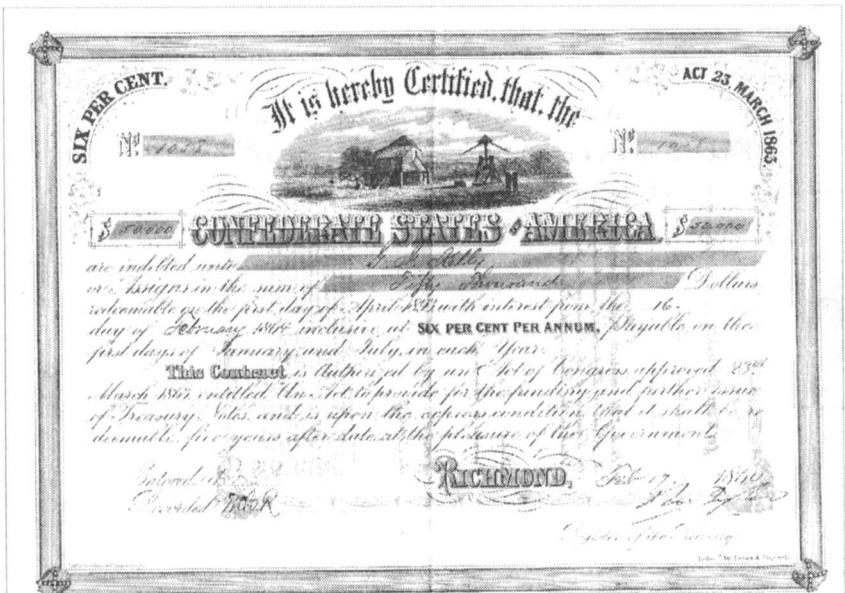 SIX PER CENT.
ACT 23, MARCH 1863.
It is hereby Certified, that, the
Nº
Nº
$ 50.000
CONFEDERATE STATES OF AMERICA
$ 50.000
are indebted unto
or Assigns in the sum of Fifty Thousand Dollars
redeemable on the first day of April with interest from the 16
day of February 1864 inclusive at SIX PER CENT PER ANNUM, Payable on the
first days of January and July in each Year.
This Contract is Authorized by an Act of Congress approved 23rd
March 1863, entitled, An Act to provide for the funding and further issue
of Treasury Notes, and is upon the express condition that it shall be re
deemable five years after date, at the pleasure of the Government
RICHMOND, Feb 17
Recorded
Register of the Treasury